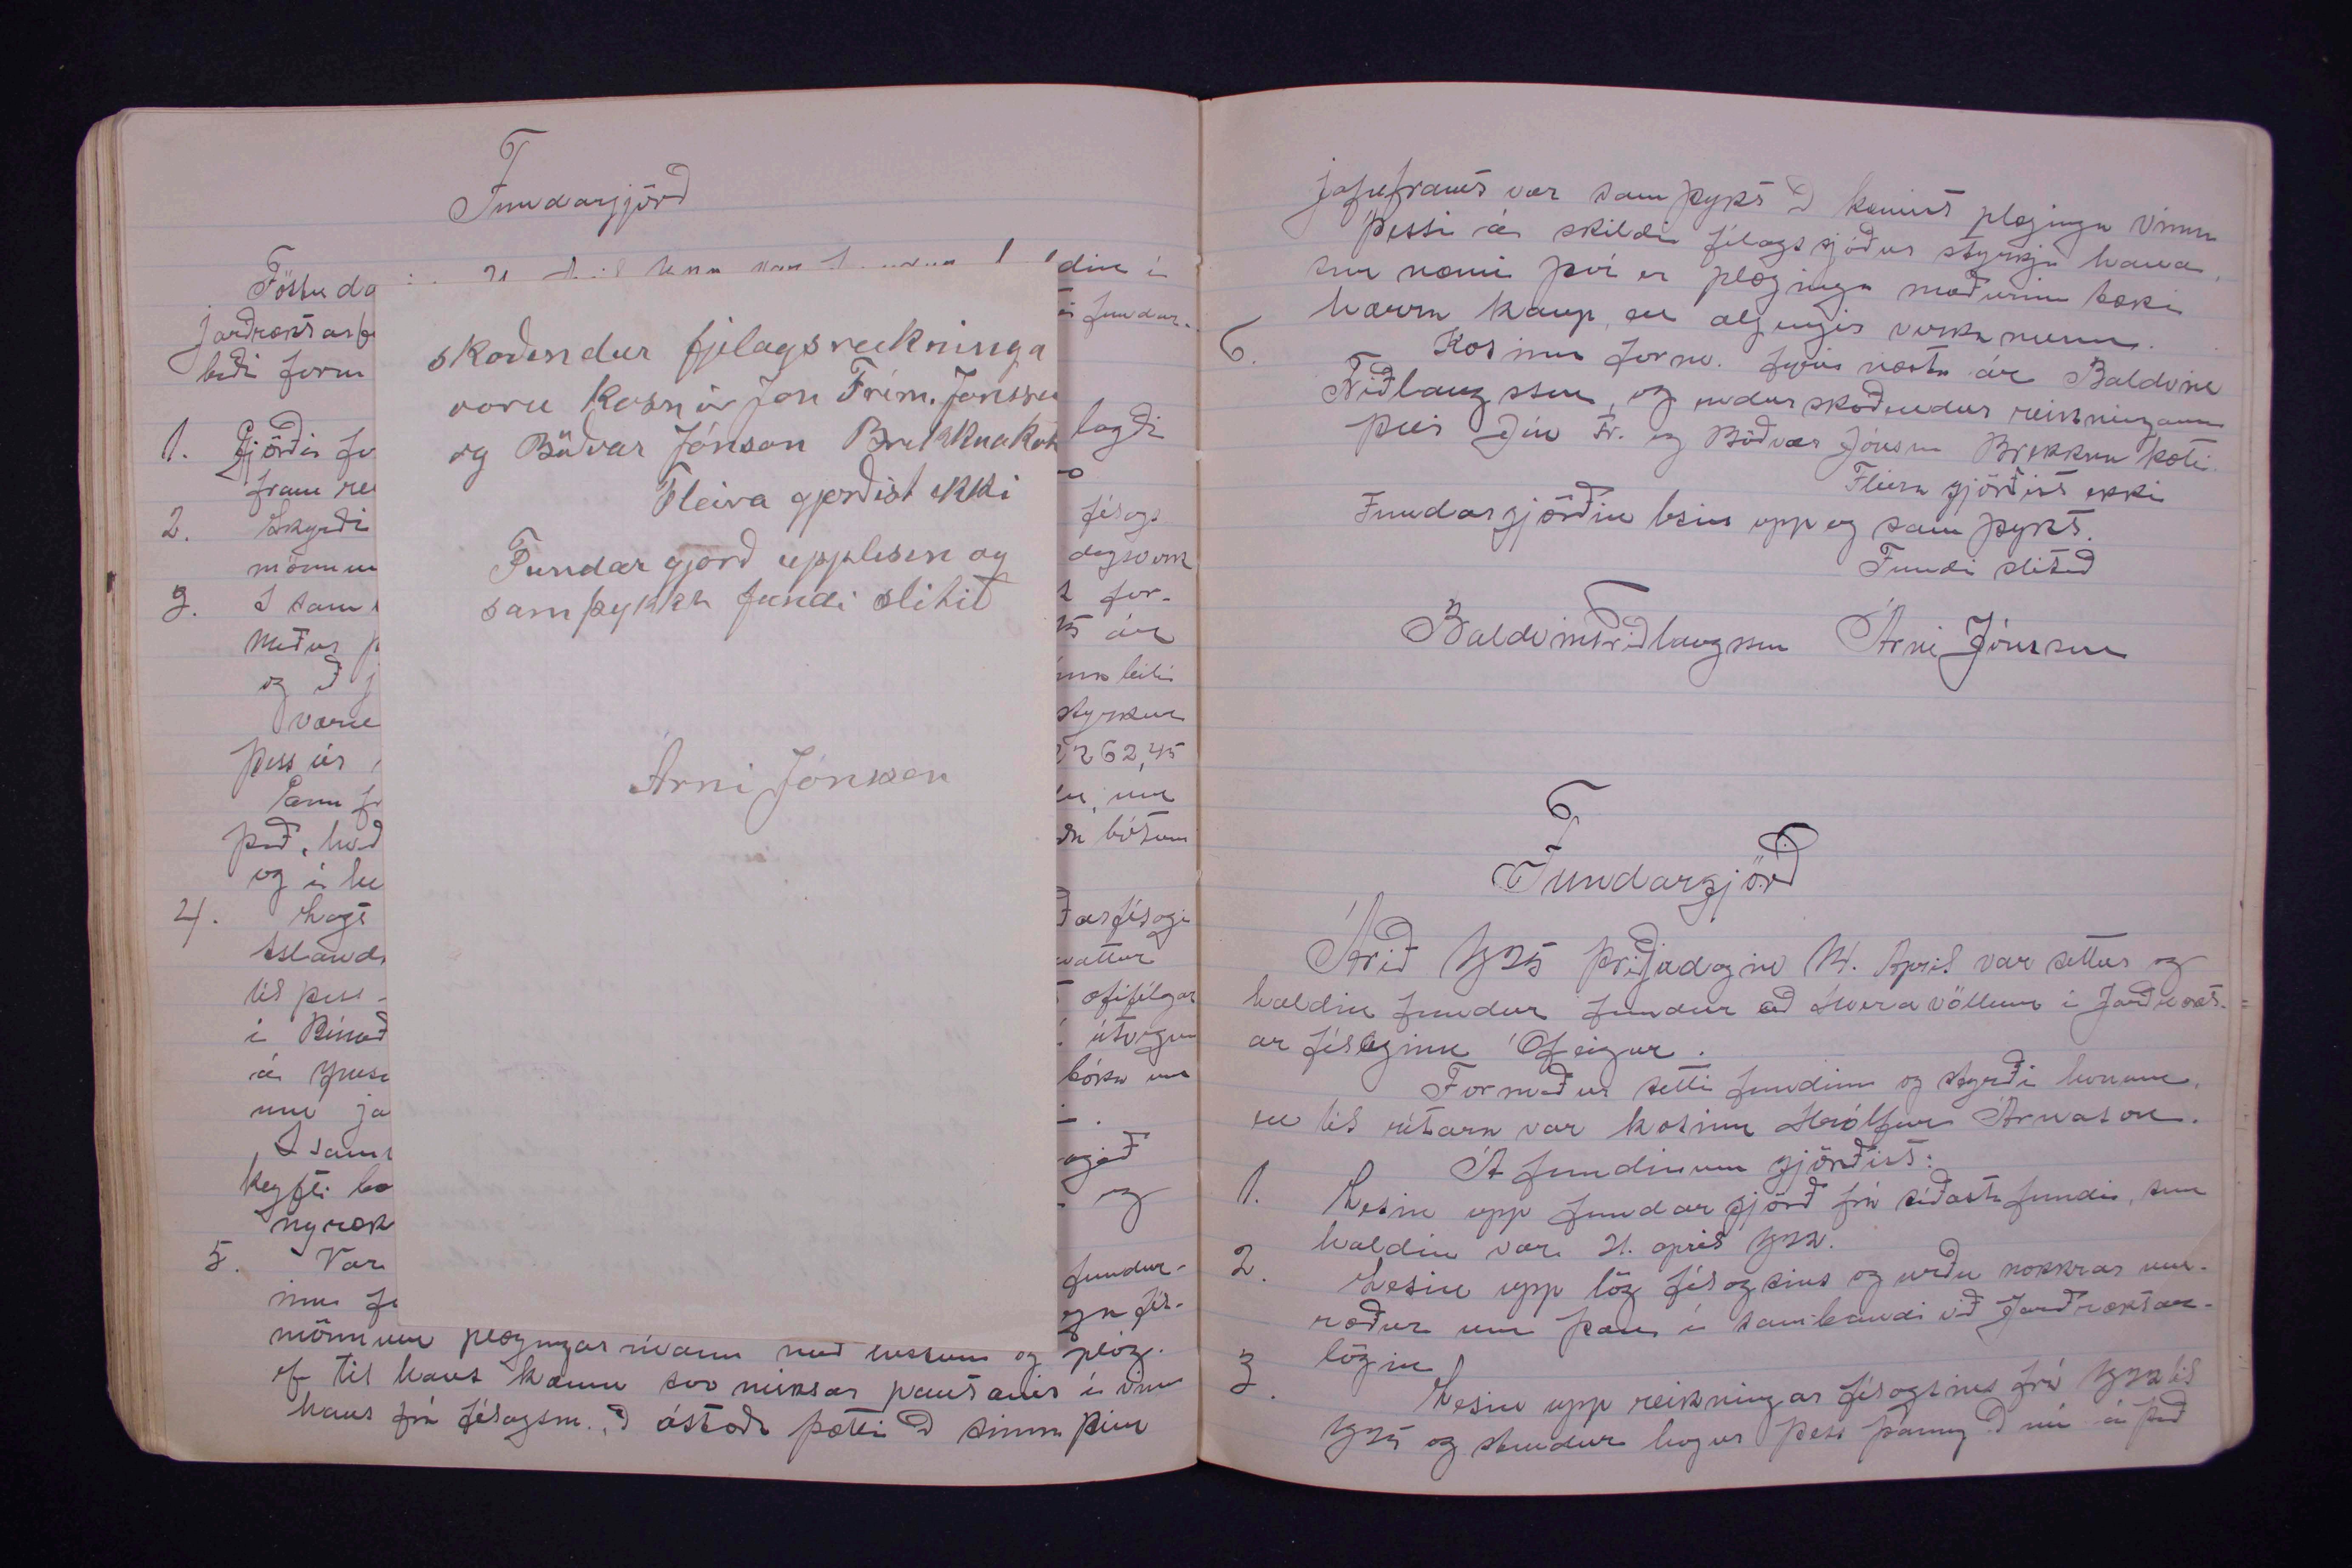 Fundargjörð
Föstuda
din í
jarðræktarfj
fundar-
beði form
1. Gjörði fo
lagði
fram rei
2. Skyrði
félags
mönnum
dagsverk
3. Í sam
for-
Maður
ár
og að
leiti
væru
styrkur
þess ár
262,45
um
það, hvað
bótum
og í
4. Lagt
arfélagi
Íslands
til þess
í Búnað
útvegun
á
bóka um
um ja
Í sam
keypti bo
og
nyrækt
5. Var
fundur-
inn
mönnum plægingarmann með hestum og plóg.
ef til hans kæmu svo miklar pantanir í vinnu
hans frá félagsm. að ástæða þætti að sinna þeim
skoðendur fjelagsreikninga
voru kosnir Jón Frím. Jónsson
og Böðvar Jónsson Brekknakoti
Fleira gjörðist ekki
Fundargjörð upplesin og
samþykkt fundi slitið
Árni Jónsson
Jafnframt var samþykt að kæmist plæginga vinna
þessi á, skildi félagssjóður styrkja hana,
sem næmi því er plæginga maðurinn tæki
hærra kaup, en algengir verkamenn.
6. Kosinn form. fyrir næsta ár Baldvin
Friðlaugsson, og endurskoðendur reikninganna
þeir Jón Fr. og Böðvar Jónsson Brekknakoti.
Fleira gjörðist ekki
Fundargjörðin lesin upp og samþykt.
Fundi slitið
Baldvin Friðlaugsson Árni Jónsson
Fundargjörð
Árið 1925 þriðjudaginn 14. Apríl var settur og
haldin fundur fundur að Hveravöllum í Jarðrækt-
ar félaginu Ófeigur.
Formaður setti fundinn og styrði honum,
en til ritara var kosinn Hrólfur Árnason.
Á fundinum gjörðist:
1. Lesin upp fundargjörð frá síðasta fundi, sem
haldin var 21. apríl 1922.
2. Lesin upp lög félagsins og urðu nokkrar um-
ræður um þau í sambandi við Jarðræktar-
lögin
3. Lesin upp reikningar félagsins frá 1922 til
1925 og stendur hagur þess þannig að nú á það